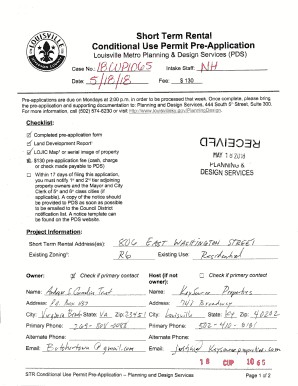 LOUISVILLE
Short Term Rental
Conditional Use Permit Pre-Application
Louisville Metro Planning & Design Services (PDS)
Case No.: 18CUP1065 Intake Staff: NH
Date: 5/18/18 Fee: $ 130
Pre-applications are due on Mondays at 2:00 p.m. in order to be processed that week. Once complete, please bring
the pre-application and supporting documentation to: Planning and Design Services, 444 South 5th Street, Suite 300.
For more information, call (502) 574-6230 or visit http://www.louisvilleky.gov/PlanningDesign.
Checklist:
Completed pre-application form
Land Development Report
LOJIC Map or aerial image of property
$130 pre-application fee (cash, charge
or check made payable to PDS)
Within 17 days of filing this application,
you must notify 1st and 2nd tier adjoining
property owners and the Mayor and City
Clerk of 5th and 6th class cities (if
applicable). A copy of the notice should
be provided to PDS as soon as possible
to be emailed to the Council District
notification list. A notice template can
be found on the PDS website.
RECEIVED
MAY 18 2018
PLANNING &
DESIGN SERVICES
Project Information:
Short Term Rental Address(es): 806 EAST WASHINGTON STREET
Existing Zoning: R6 Existing Use: Residential
Owner: Check if primary contact
Host (if not owner): Check if primary contact
Name: Trust
Name: Keysource Properties
Address: P.O. Box
Address: Broadway
City: Virginia Beach State: VA Zip:
City: Louisville State: KY Zip: 40202
Primary Phone:
Primary Phone: 502-410-
Alternate Phone:
Alternate Phone:
Email: @gmail.com
Email:
18 CUP 1065
STR Conditional Use Permit Pre-Application – Planning and Design Services Page 1 of 2